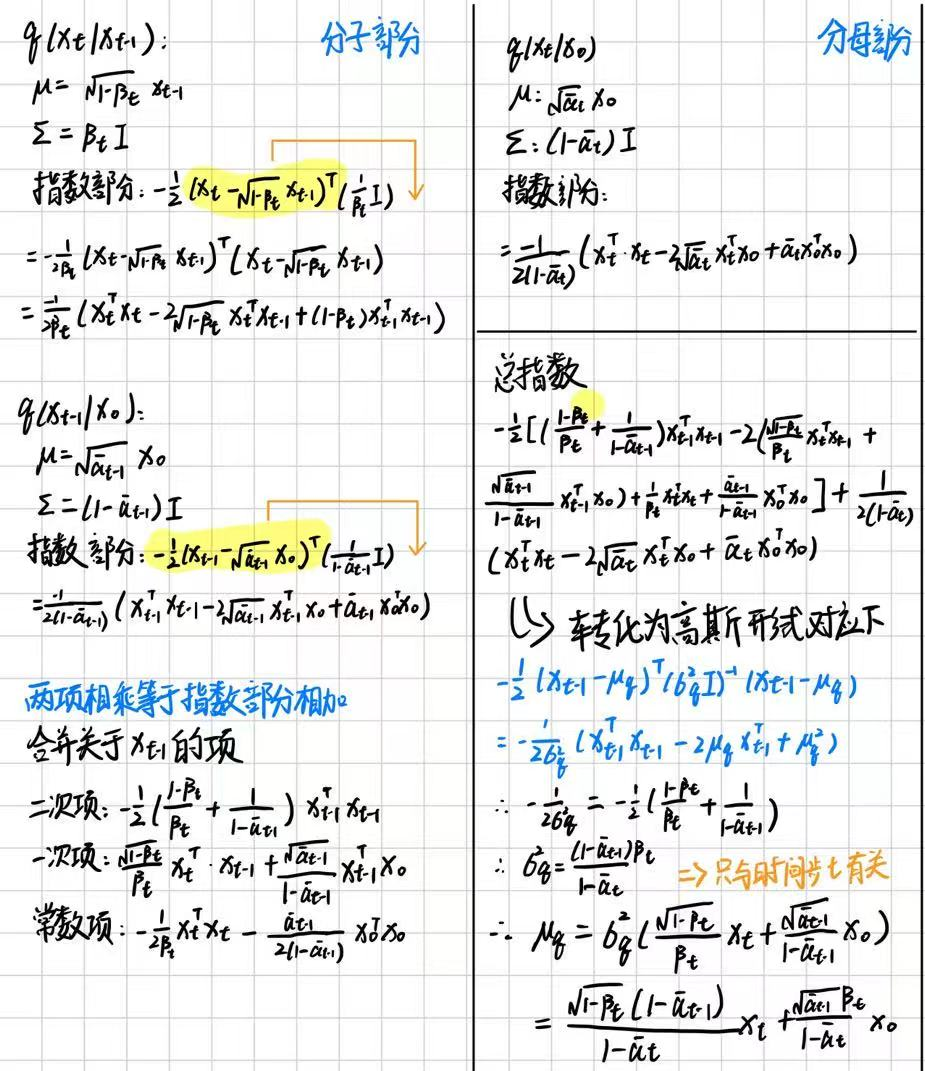 q(x_t|x_{t-1}): 分子部分
μ= √(1-β_t) x_{t-1}
Σ = β_t I
指数部分: -1/2 (x_t - √(1-β_t) x_{t-1})^T (1/β_t I)
= -1/(2β_t) (x_t - √(1-β_t) x_{t-1})^T (x_t - √(1-β_t) x_{t-1})
= -1/(2β_t) (x_t^T x_t - 2√(1-β_t) x_t^T x_{t-1} + (1-β_t) x_{t-1}^T x_{t-1})
q(x_{t-1}|x_0):
μ = √ᾱ_{t-1} x_0
Σ = (1-ᾱ_{t-1}) I
指数部分: -1/2 (x_{t-1} - √ᾱ_{t-1} x_0)^T (1/(1-ᾱ_{t-1}) I)
= -1/(2(1-ᾱ_{t-1})) (x_{t-1}^T x_{t-1} - 2√ᾱ_{t-1} x_{t-1}^T x_0 + ᾱ_{t-1} x_0^T x_0)
两项相乘等于指数部分相加
合并关于 x_{t-1} 的项
二次项: -1/2 ((1-β_t)/β_t + 1/(1-ᾱ_{t-1})) x_{t-1}^T x_{t-1}
一次项: √(1-β_t)/β_t x_t^T · x_{t-1} + √ᾱ_{t-1}/(1-ᾱ_{t-1}) x_{t-1}^T x_0
常数项: -1/(2β_t) x_t^T x_t - ᾱ_{t-1}/(2(1-ᾱ_{t-1})) x_0^T x_0
q(x_t|x_0) 分母部分
μ: √ᾱ_t x_0
Σ: (1-ᾱ_t) I
指数部分:
= -1/(2(1-ᾱ_t)) (x_t^T · x_t - 2√ᾱ_t x_t^T x_0 + ᾱ_t x_0^T x_0)
总指数
-1/2 [((1-β_t)/β_t + 1/(1-ᾱ_{t-1})) x_{t-1}^T x_{t-1} - 2(√(1-β_t)/β_t x_t^T x_{t-1} +
√ᾱ_{t-1}/(1-ᾱ_{t-1}) x_{t-1}^T x_0) + 1/β_t x_t^T x_t + ᾱ_{t-1}/(1-ᾱ_{t-1}) x_0^T x_0] + 1/(2(1-ᾱ_t))
(x_t^T x_t - 2√ᾱ_t x_t^T x_0 + ᾱ_t x_0^T x_0)
↳ 转化为高斯形式对应下
-1/2 (x_{t-1} - μ_q)^T (σ_q² I)^{-1} (x_{t-1} - μ_q)
= -1/(2σ_q²) (x_{t-1}^T x_{t-1} - 2μ_q x_{t-1}^T + μ_q²)
∴ -1/(2σ_q²) = -1/2 ((1-β_t)/β_t + 1/(1-ᾱ_{t-1}))
∴ σ_q² = (1-ᾱ_{t-1})β_t/(1-ᾱ_t) => 只与时间步 t 有关
∴ μ_q = σ_q² (√(1-β_t)/β_t x_t + √ᾱ_{t-1}/(1-ᾱ_{t-1}) x_0)
= √(1-β_t)(1-ᾱ_{t-1})/(1-ᾱ_t) x_t + √ᾱ_{t-1} β_t/(1-ᾱ_t) x_0